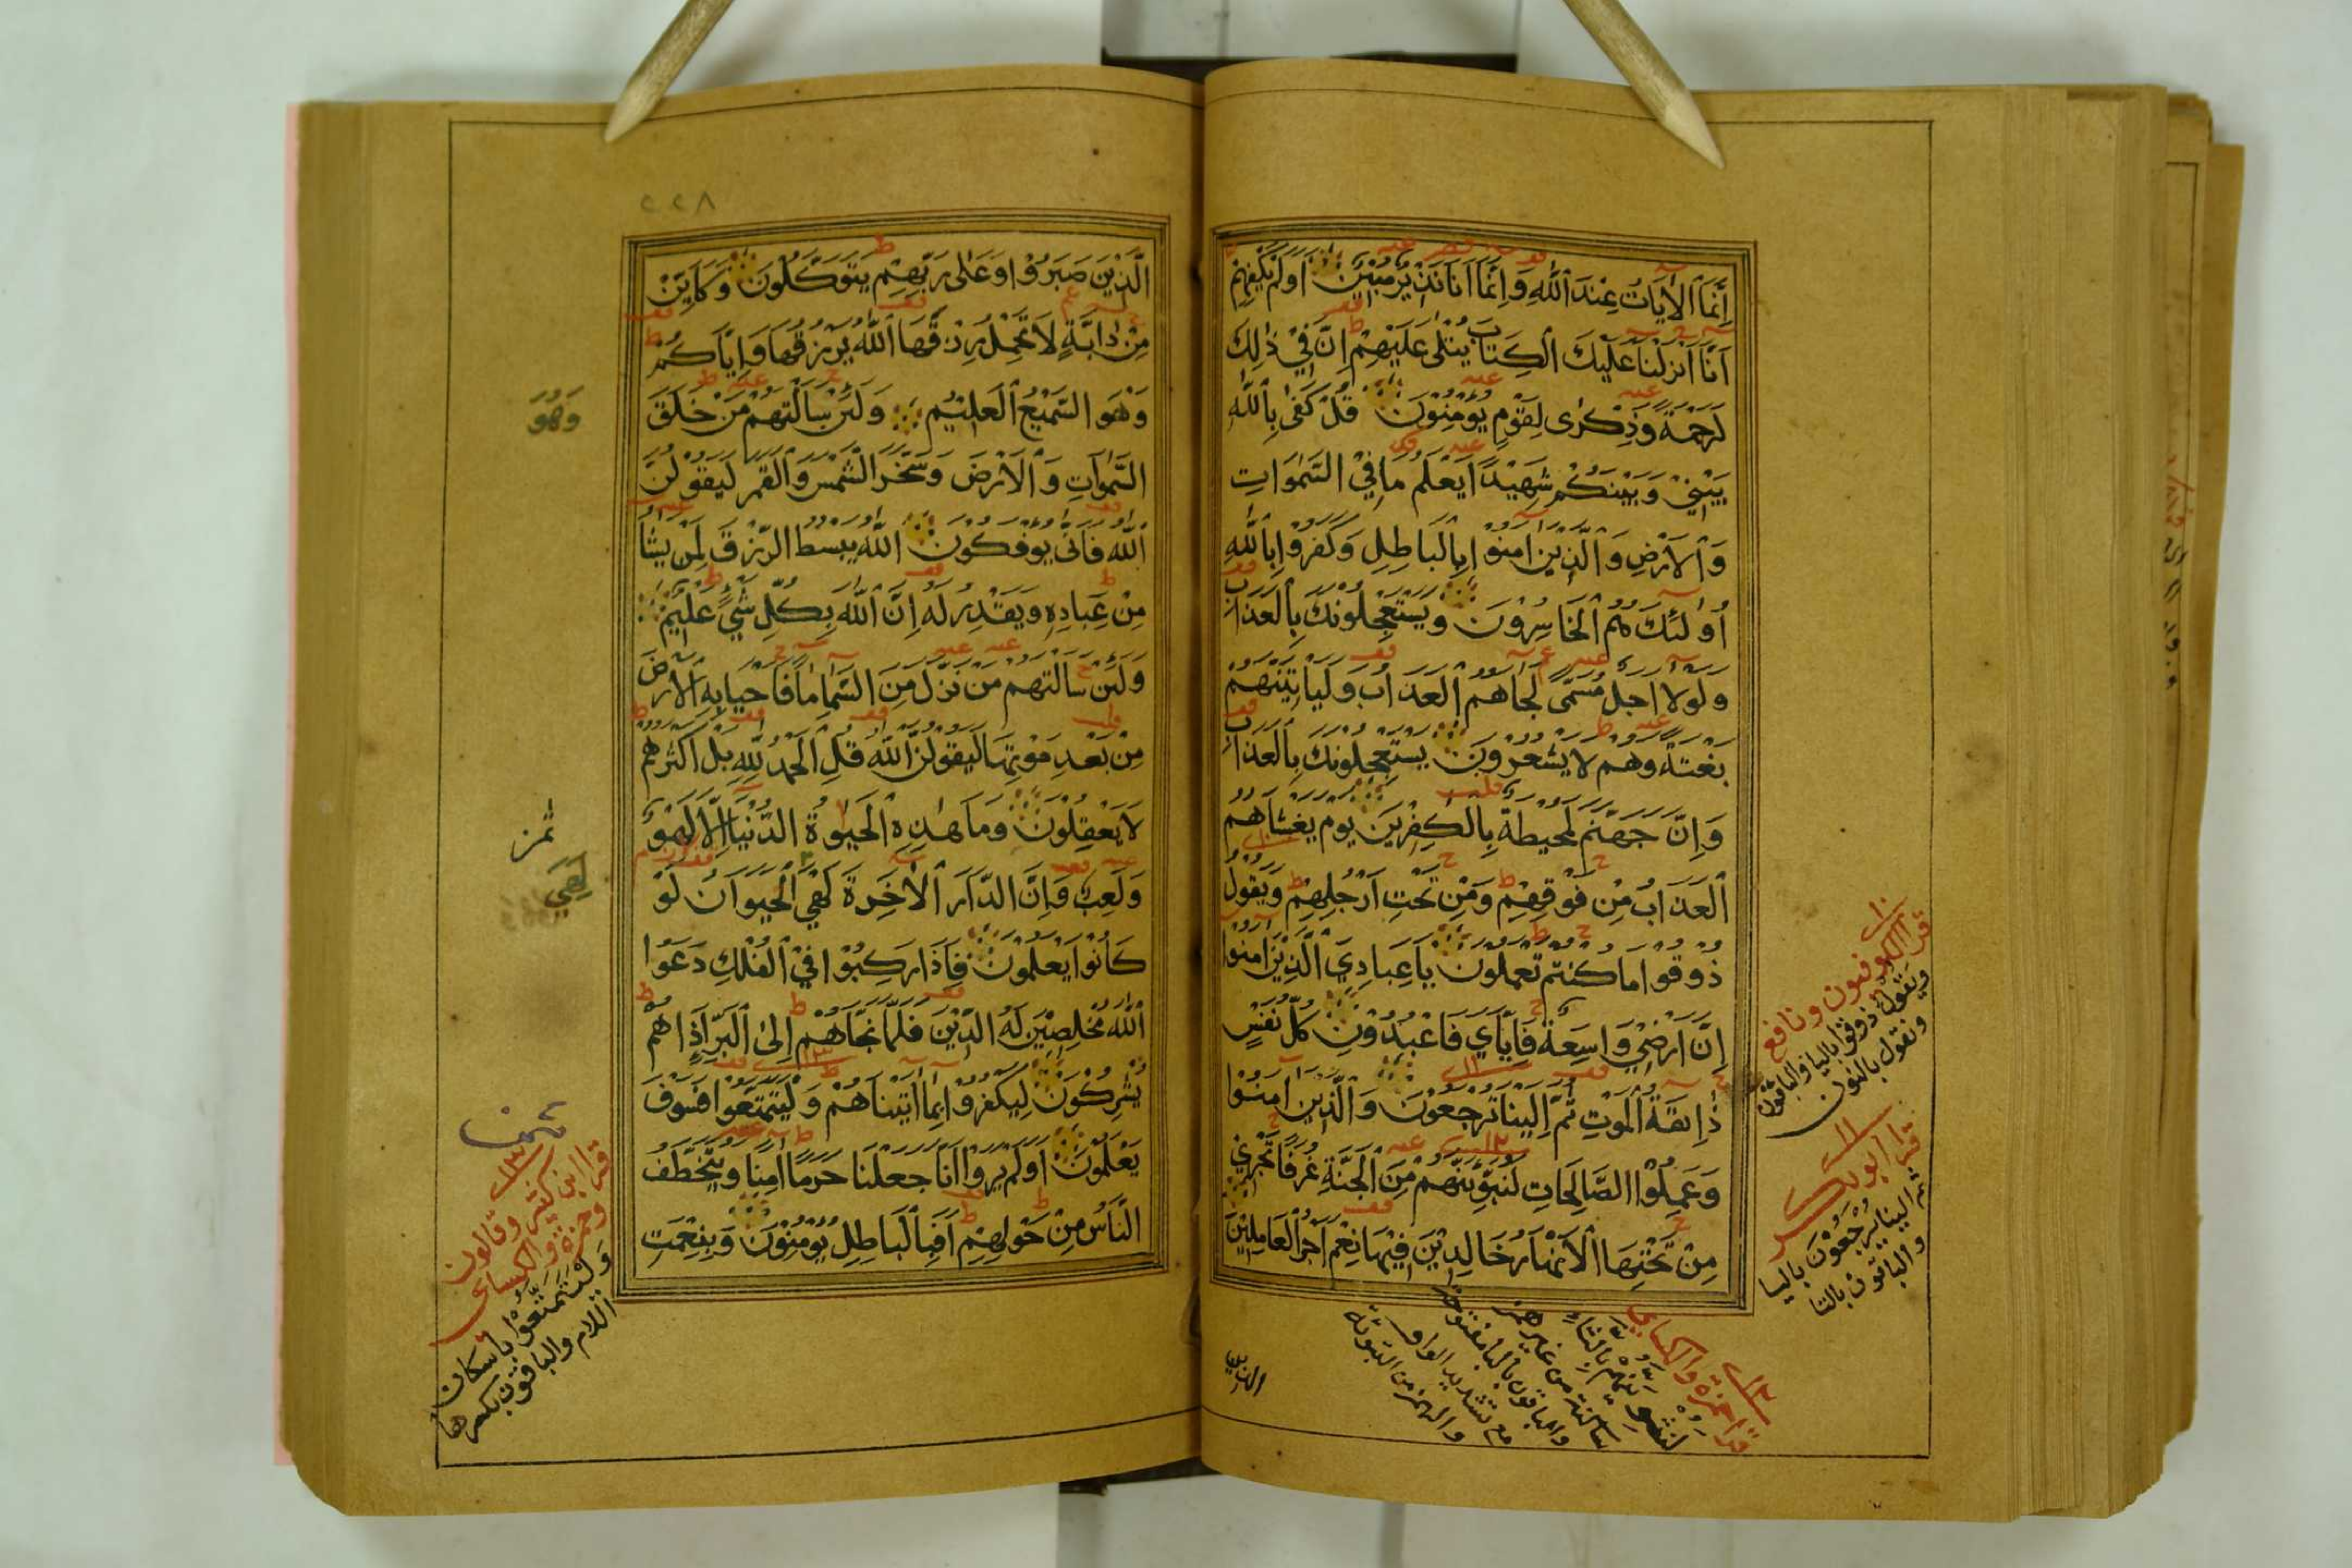 اِنَّمَا الْاٰيَاتُ عِنْدَ اللّٰهِ وَاِنَّمَا اَنَا نَذِيْرٌ مُبِيْنٌ اَوَلَمْ يَكْفِهِمْ
اَنَّا اَنْزَلْنَا عَلَيْكَ الْكِتَابَ يُتْلٰى عَلَيْهِمْ اِنَّ فِيْ ذٰلِكَ
لَرَحْمَةً وَذِكْرٰى لِقَوْمٍ يُؤْمِنُوْنَ قُلْ كَفٰى بِاللّٰهِ
بَيْنِيْ وَبَيْنَكُمْ شَهِيْدًا يَعْلَمُ مَا فِيْ السَّمٰوَاتِ
وَالْاَرْضِ وَالَّذِيْنَ اٰمَنُوْا بِالْبَاطِلِ وَكَفَرُوْا بِاللّٰهِ
اُولٰئِكَ هُمُ الْخَاسِرُوْنَ وَيَسْتَعْجِلُوْنَكَ بِالْعَذَابِ
وَلَوْلَا اَجَلٌ مُسَمًّى لَجَاهُمُ الْعَذَابُ وَلَيَأْتِيَنَّهُمْ
بَغْتَةً وَهُمْ لَا يَشْعُرُوْنَ يَسْتَعْجِلُوْنَكَ بِالْعَذَابِ
وَاِنَّ جَهَنَّمَ لَمُحِيْطَةٌ بِالْكٰفِرِيْنَ يَوْمَ يَغْشَاهُمُ
الْعَذَابُ مِنْ فَوْقِهِمْ وَمِنْ تَحْتِ اَرْجُلِهِمْ وَيَقُوْلُ
ذُوْقُوْا مَا كُنْتُمْ تَعْمَلُوْنَ يَا عِبَادِيَ الَّذِيْنَ اٰمَنُوْا
اِنَّ اَرْضِيْ وَاسِعَةٌ فَاِيَّايَ فَاعْبُدُوْنِ كُلُّ نَفْسٍ
ذَائِقَةُ الْمَوْتِ ثُمَّ اِلَيْنَا تُرْجَعُوْنَ وَالَّذِيْنَ اٰمَنُوْا
وَعَمِلُوْا الصَّالِحَاتِ لَنُبَوِّئَنَّهُمْ مِنَ الْجَنَّةِ غُرَفًا تَجْرِيْ
مِنْ تَحْتِهَا الْاَنْهَارُ خَالِدِيْنَ فِيْهَا نِعْمَ اَجْرُ الْعَامِلِيْنَ
١٠
قرا الكوفيون ونافع
ويقول ذوقوا باليا والباقون
ونقول بالنون
١١
قرا ابوبكر
ثم الينا يرجعون باليا
والباقون بالتا
١٢
قرا حمزة والكسائي
لنثوينهم بالثاء
ساكنة من غير همز
والباقون بالبا مفتوحة
مع تشديد الواو
والهمز من التبوئة
الذين
٢٢٨
الَّذِيْنَ صَبَرُوْا وَعَلٰى رَبِّهِمْ يَتَوَكَّلُوْنَ وَكَاَيِّنْ
مِنْ دَابَّةٍ لَا تَحْمِلُ رِزْقَهَا اللّٰهُ يَرْزُقُهَا وَاِيَّاكُمْ
وَهْوَ السَّمِيْعُ الْعَلِيْمُ وَلَئِنْ سَاَلْتَهُمْ مَنْ خَلَقَ
السَّمٰوَاتِ وَالْاَرْضَ وَسَخَّرَ الشَّمْسَ وَالْقَمَرَ لَيَقُوْلُنَّ
اللّٰهُ فَاَنّٰى يُوْفَكُوْنَ اللّٰهُ يَبْسُطُ الرِّزْقَ لِمَنْ يَشَا
مِنْ عِبَادِهِ وَيَقْدِرُ لَهُ اِنَّ اللّٰهَ بِكُلِّ شَيْءٍ عَلِيْمٌ
وَلَئِنْ سَاَلْتَهُمْ مَنْ نَزَّلَ مِنَ السَّمَا مَا فَاَحْيَا بِهِ الْاَرْضَ
مِنْ بَعْدِ مَوْتِهَا لَيَقُوْلُنَّ اللّٰهُ قُلِ الْحَمْدُ لِلّٰهِ بَلْ اَكْثَرُهُمْ
لَا يَعْقِلُوْنَ وَمَا هٰذِهِ الْحَيٰوةُ الدُّنْيَا اِلَّا لَهْوٌ
وَلَعِبٌ وَاِنَّ الدَّارَ الْاٰخِرَةَ لَهْيَ الْحَيَوَانُ لَوْ
كَانُوْا يَعْلَمُوْنَ فَاِذَا رَكِبُوْا فِيْ الْفُلْكِ دَعَوُا
اللّٰهَ مُخْلِصِيْنَ لَهُ الدِّيْنَ فَلَمَّا نَجَّاهُمْ اِلَى الْبَرِّ اِذَا هُمْ
يُشْرِكُوْنَ لِيَكْفُرُوْا بِمَا اٰتَيْنَاهُمْ وَلْيَتَمَتَّعُوْا فَسَوْفَ
يَعْلَمُوْنَ اَوَلَمْ يَرَوْا اَنَّا جَعَلْنَا حَرَمًا اٰمِنًا وَيُتَخَطَّفُ
النَّاسُ مِنْ حَوْلِهِمْ اَفَبِالْبَاطِلِ يُؤْمِنُوْنَ وَبِنِعْمَتِ
وَهُوَ
ثمن
لَهِيَ
١٣
قرا ابن كثير وقالون
وحمزة والكسائي
وَلْيَتَمَتَّعُوْا باسكان
اللام والباقون بكسرها